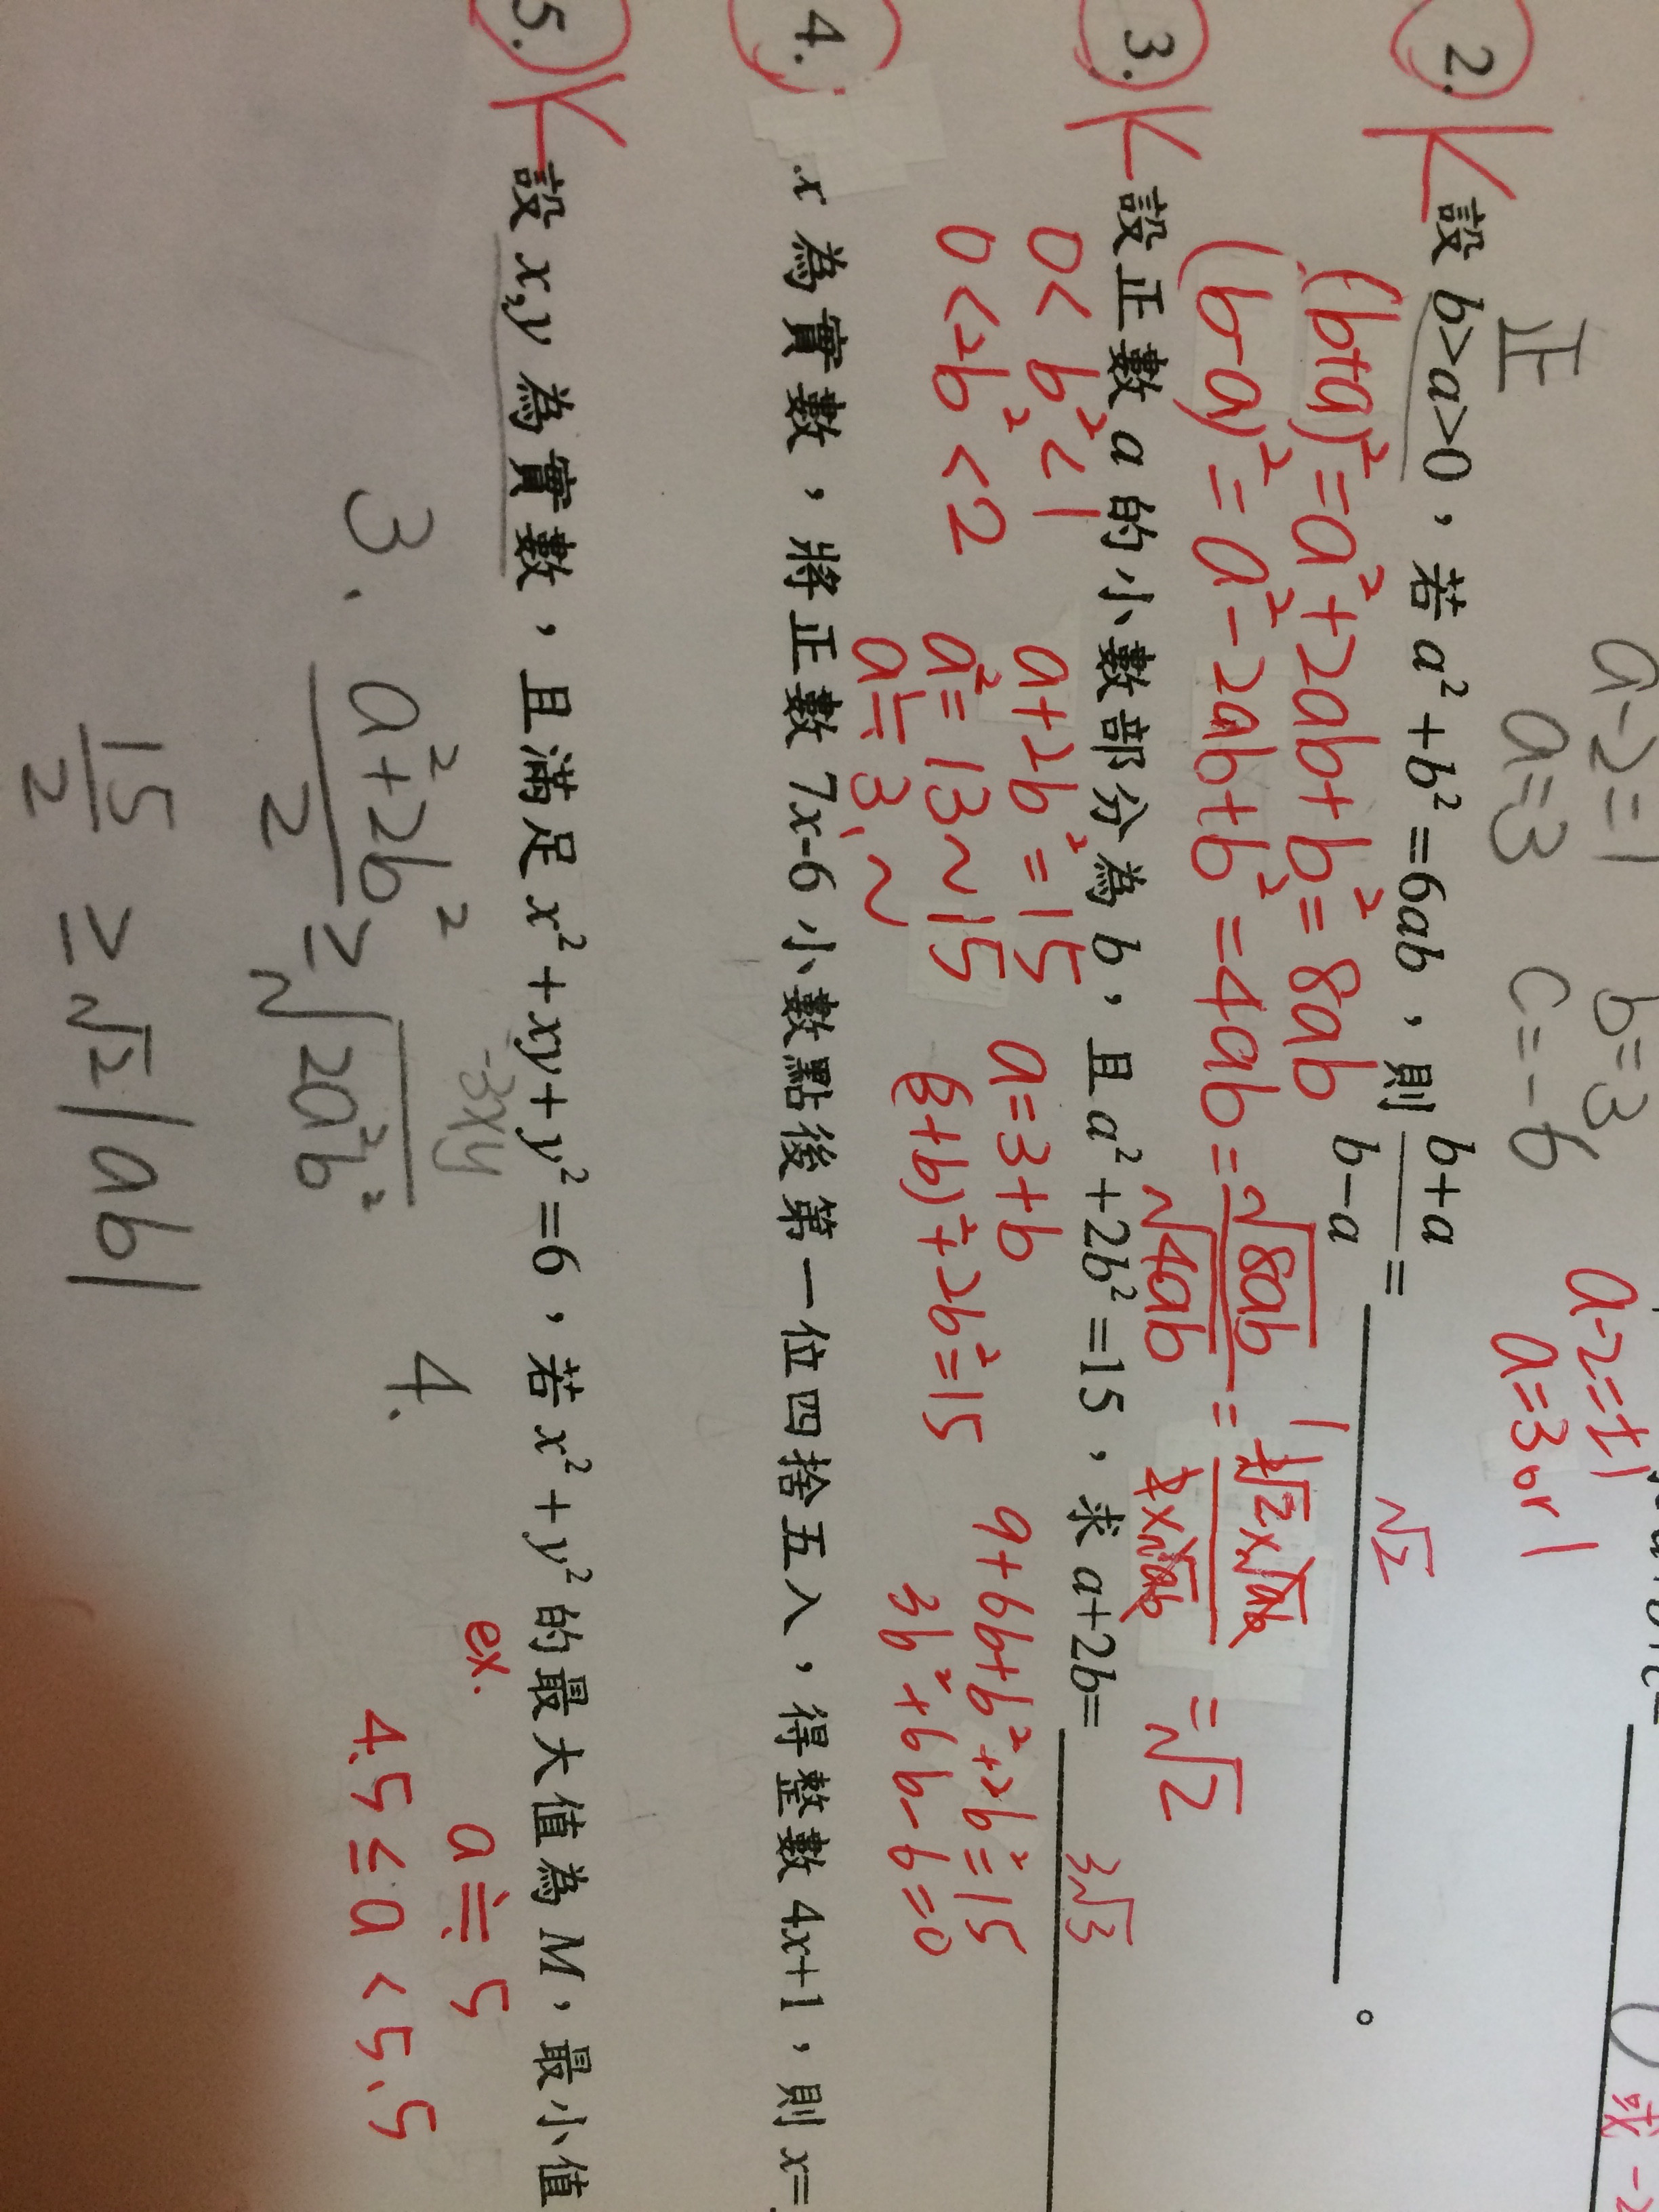 a-2=1 b=3 a-2=±1
正 a=3 c=-6 a=3 or 1
0 或 -2
2. 設 b>a>0，若 a²+b²=6ab，則 b+a/b-a = √2 。
(b+a)²=a²+2ab+b²=8ab
(b-a)²=a²-2ab+b²=4ab = √8ab/√4ab = = √2
3. 設正數 a 的小數部分為 b，且 a²+2b²=15，求 a+2b= 3√3
0<b²<1 a+2b²=15 a=3+b 9+6b+b²+2b²=15
0<2b²<2 a²=13~15 (3+b)²+2b²=15 3b²+6b-6=0
a≒3.~
4. x 為實數，將正數 7x-6 小數點後第一位四捨五入，得整數 4x+1，則 x=
5. 設 x,y 為實數，且滿足 x²+xy+y²=6，若 x²+y² 的最大值為 M，最小值
-3xy
3. a²+2b²/2 ≥ √2a²b²
15/2 ≥ √2|ab|
4. ex. a≒5
4.5≤a<5.5